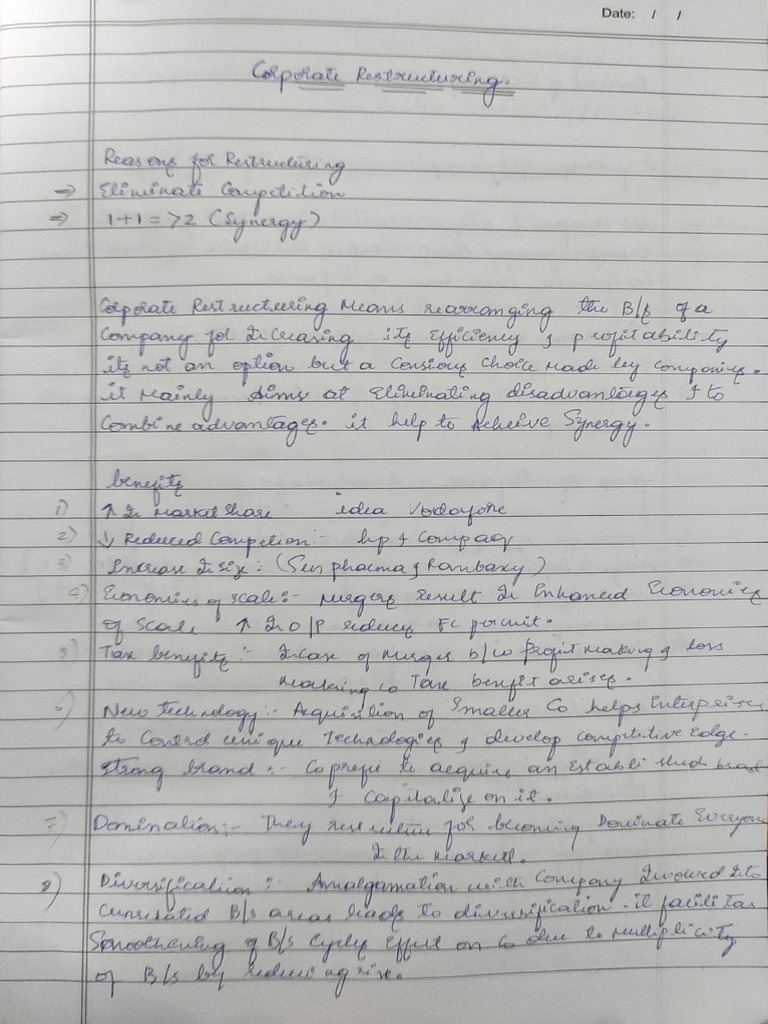 Date: / /
Corporate Restructuring.
Reasons for Restructuring
⇒ Eliminate Competition
⇒ 1+1 = >2 (Synergy)
Corporate Restructuring Means rearranging the B/s of a
Company for Increasing its Efficiency & profitability
its not an option but a Consious choice made by companies.
it Mainly Aims at Eliminating disadvantages & to
Combine advantages. it help to Acheive Synergy.
benefits
1) ↑ In Market Share idea Vodafone
2) ↓ Reduced Competion:- hp & Compaq
3) Increase In size: (Sun pharma & Ranbaxy)
4) Economies of scale:- Mergers result In Enhanced Economies
of Scale ↑ In O/P reduces FC per unit.
5) Tax benefits:- Incase of Merger b/w profit making & loss
making co Tax benefit arises.
6) New technology:- Acquisition of Smaller Co helps Enterprises
to Control unique Technologies & develop competitive Edge.
Strong brand:- Co prefer to acquire an Established brand
& Capitalize on it.
7) Domination:- They restructure for becoming Dominate Everyone
In the market.
8) Diversification:- Amalgamation with Company Involved Into
Unrelated B/s areas leads to diversification. it facilitates
Smoothening of B/s Cycles Effect on Co due to Multiplicity
of B/s by reducing risk.